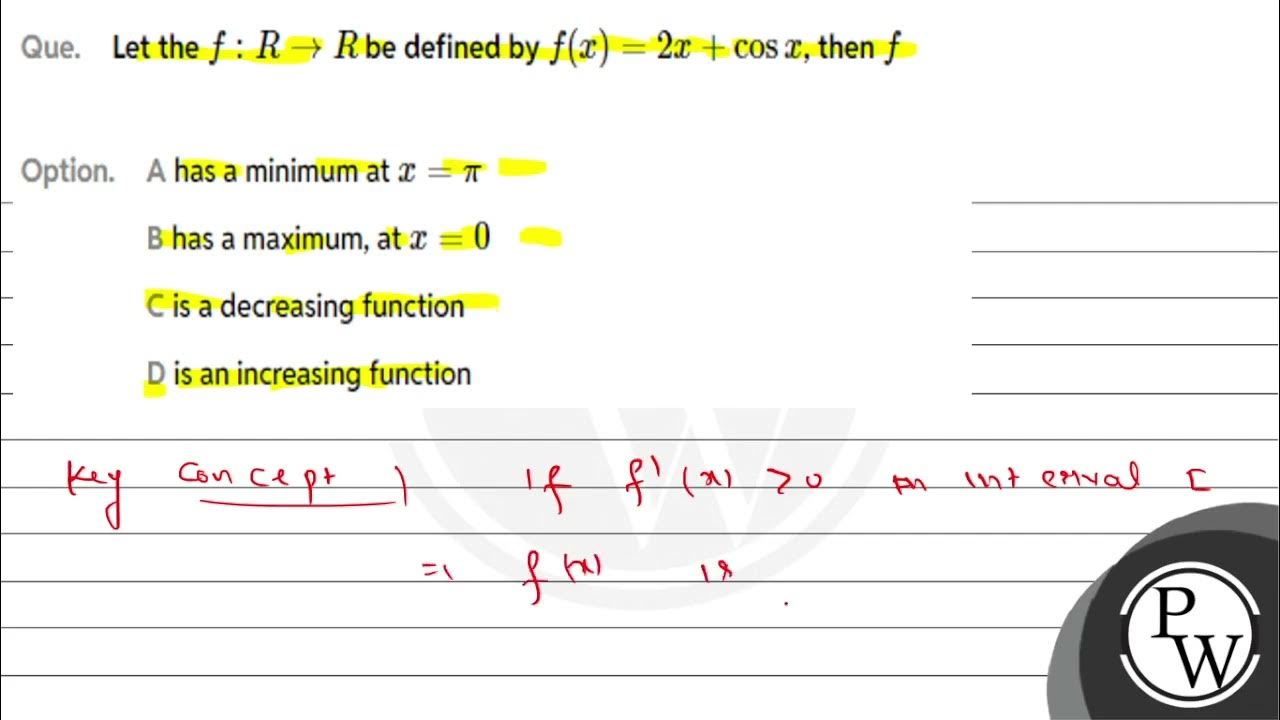 Que. Let the f : R → R be defined by f(x) = 2x + cos x, then f
Option. A has a minimum at x = π
B has a maximum, at x = 0
C is a decreasing function
D is an increasing function
Key concept) If f'(x) > 0 in interval I
⇒ f(x) is
PW